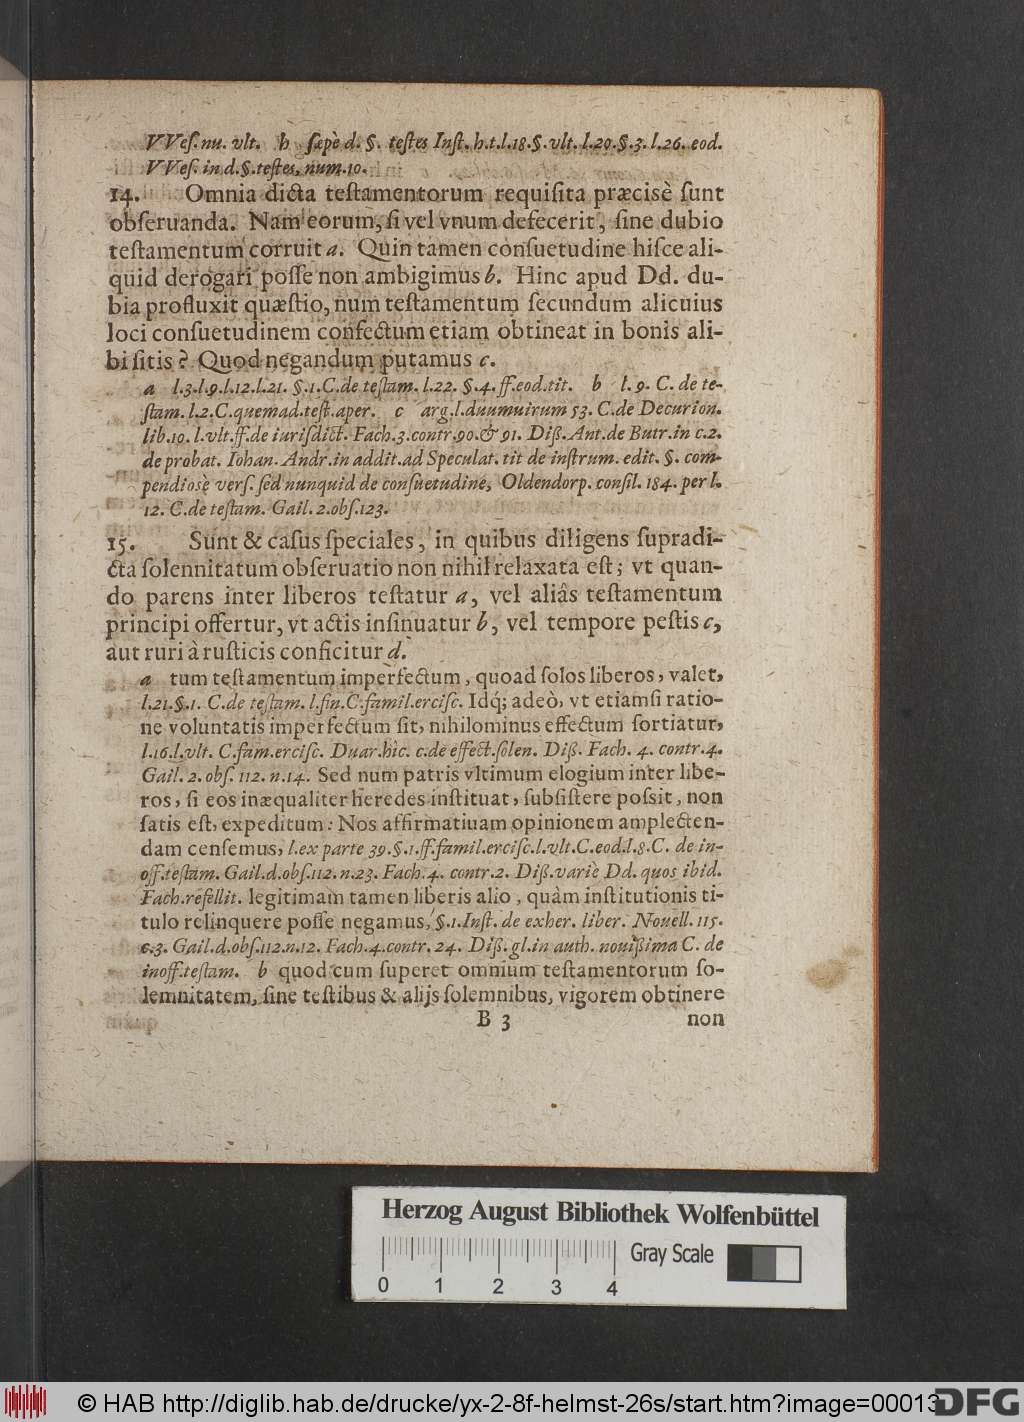 VVeſ. nu. vlt. h ſæpè d. §. teſtes Inſt. h.t.l.18.§. vlt. l.29.§.3. l.26. eod.
VVeſ. in d.§. teſtes, num. 10.
14. Omnia dicta teſtamentorum requiſita præcisè ſunt
obſeruanda. Nam eorum, ſi vel vnum defecerit, ſine dubio
teſtamentum corruit a. Quin tamen conſuetudine hiſce ali-
quid derogari poſſe non ambigimus b. Hinc apud Dd. du-
bia profluxit quæſtio, num teſtamentum ſecundum alicuius
loci conſuetudinem confectum etiam obtineat in bonis ali-
bi ſitis? Quod negandum putamus c.
a l.3.l.9.l.12.l.21. §.1.C.de teſtam. l.22. §.4. ff.eod.tit. b l. 9. C. de te-
ſtam. l.2.C.quemad.teſt.aper. c arg.l.duumuirum 53. C.de Decurion.
lib.10. l.vlt.ff.de iurisdict. Fach.3.contr.90.& 91. Diß.Ant.de Butr.in c.2.
de probat. Iohan. Andr.in addit.ad Speculat. tit de inſtrum. edit. §. com-
pendiosè verſ. ſed nunquid de conſuetudine, Oldendorp. conſil. 184. per l.
12. C.de teſtam. Gail. 2.obſ.123.
15. Sunt & caſus ſpeciales, in quibus diligens ſupradi-
cta ſolennitatum obſeruatio non nihil relaxata eſt; vt quan-
do parens inter liberos teſtatur a, vel aliâs teſtamentum
principi offertur, vt actis inſinuatur b, vel tempore peſtis c,
aut ruri à ruſticis conficitur d.
a tum teſtamentum imperfectum, quoad ſolos liberos, valet,
l.21.§.1. C.de teſtam. l.fin.C.famil.erciſc. Idq́; adeò, vt etiamſi ratio-
ne voluntatis imperfectum ſit, nihilominus effectum ſortiatur,
l.16.l.vlt. C.fam.erciſc. Duar.hic. c.de effect.ſolen. Diß. Fach. 4. contr.4.
Gail. 2. obſ. 112. n.14. Sed num patris vltimum elogium inter libe-
ros, ſi eos inæqualiter heredes inſtituat, ſubſiſtere poſsit, non
ſatis eſt, expeditum: Nos affirmatiuam opinionem amplecten-
dam cenſemus, l.ex parte 39.§.1.ff.famil.erciſc.l.vlt.C.eod.l.8.C. de in-
off.teſtam. Gail.d.obſ.112.n.23. Fach.4. contr.2. Diß.variè Dd. quos ibid.
Fach.refellit. legitimam tamen liberis alio, quàm inſtitutionis ti-
tulo relinquere poſſe negamus, §.1.Inſt. de exher. liber. Nouell. 115.
c.3. Gail.d.obſ.112.n.12. Fach.4.contr. 24. Diß.gl.in auth. nouißima C. de
inoff.teſtam. b quod cum ſuperet omnium teſtamentorum ſo-
lemnitatem, ſine teſtibus & alijs ſolemnibus, vigorem obtinere
B 3 non
Herzog August Bibliothek Wolfenbüttel
Gray Scale
0 1 2 3 4
© HAB http://diglib.hab.de/drucke/yx-2-8f-helmst-26s/start.htm?image=00013
DFG